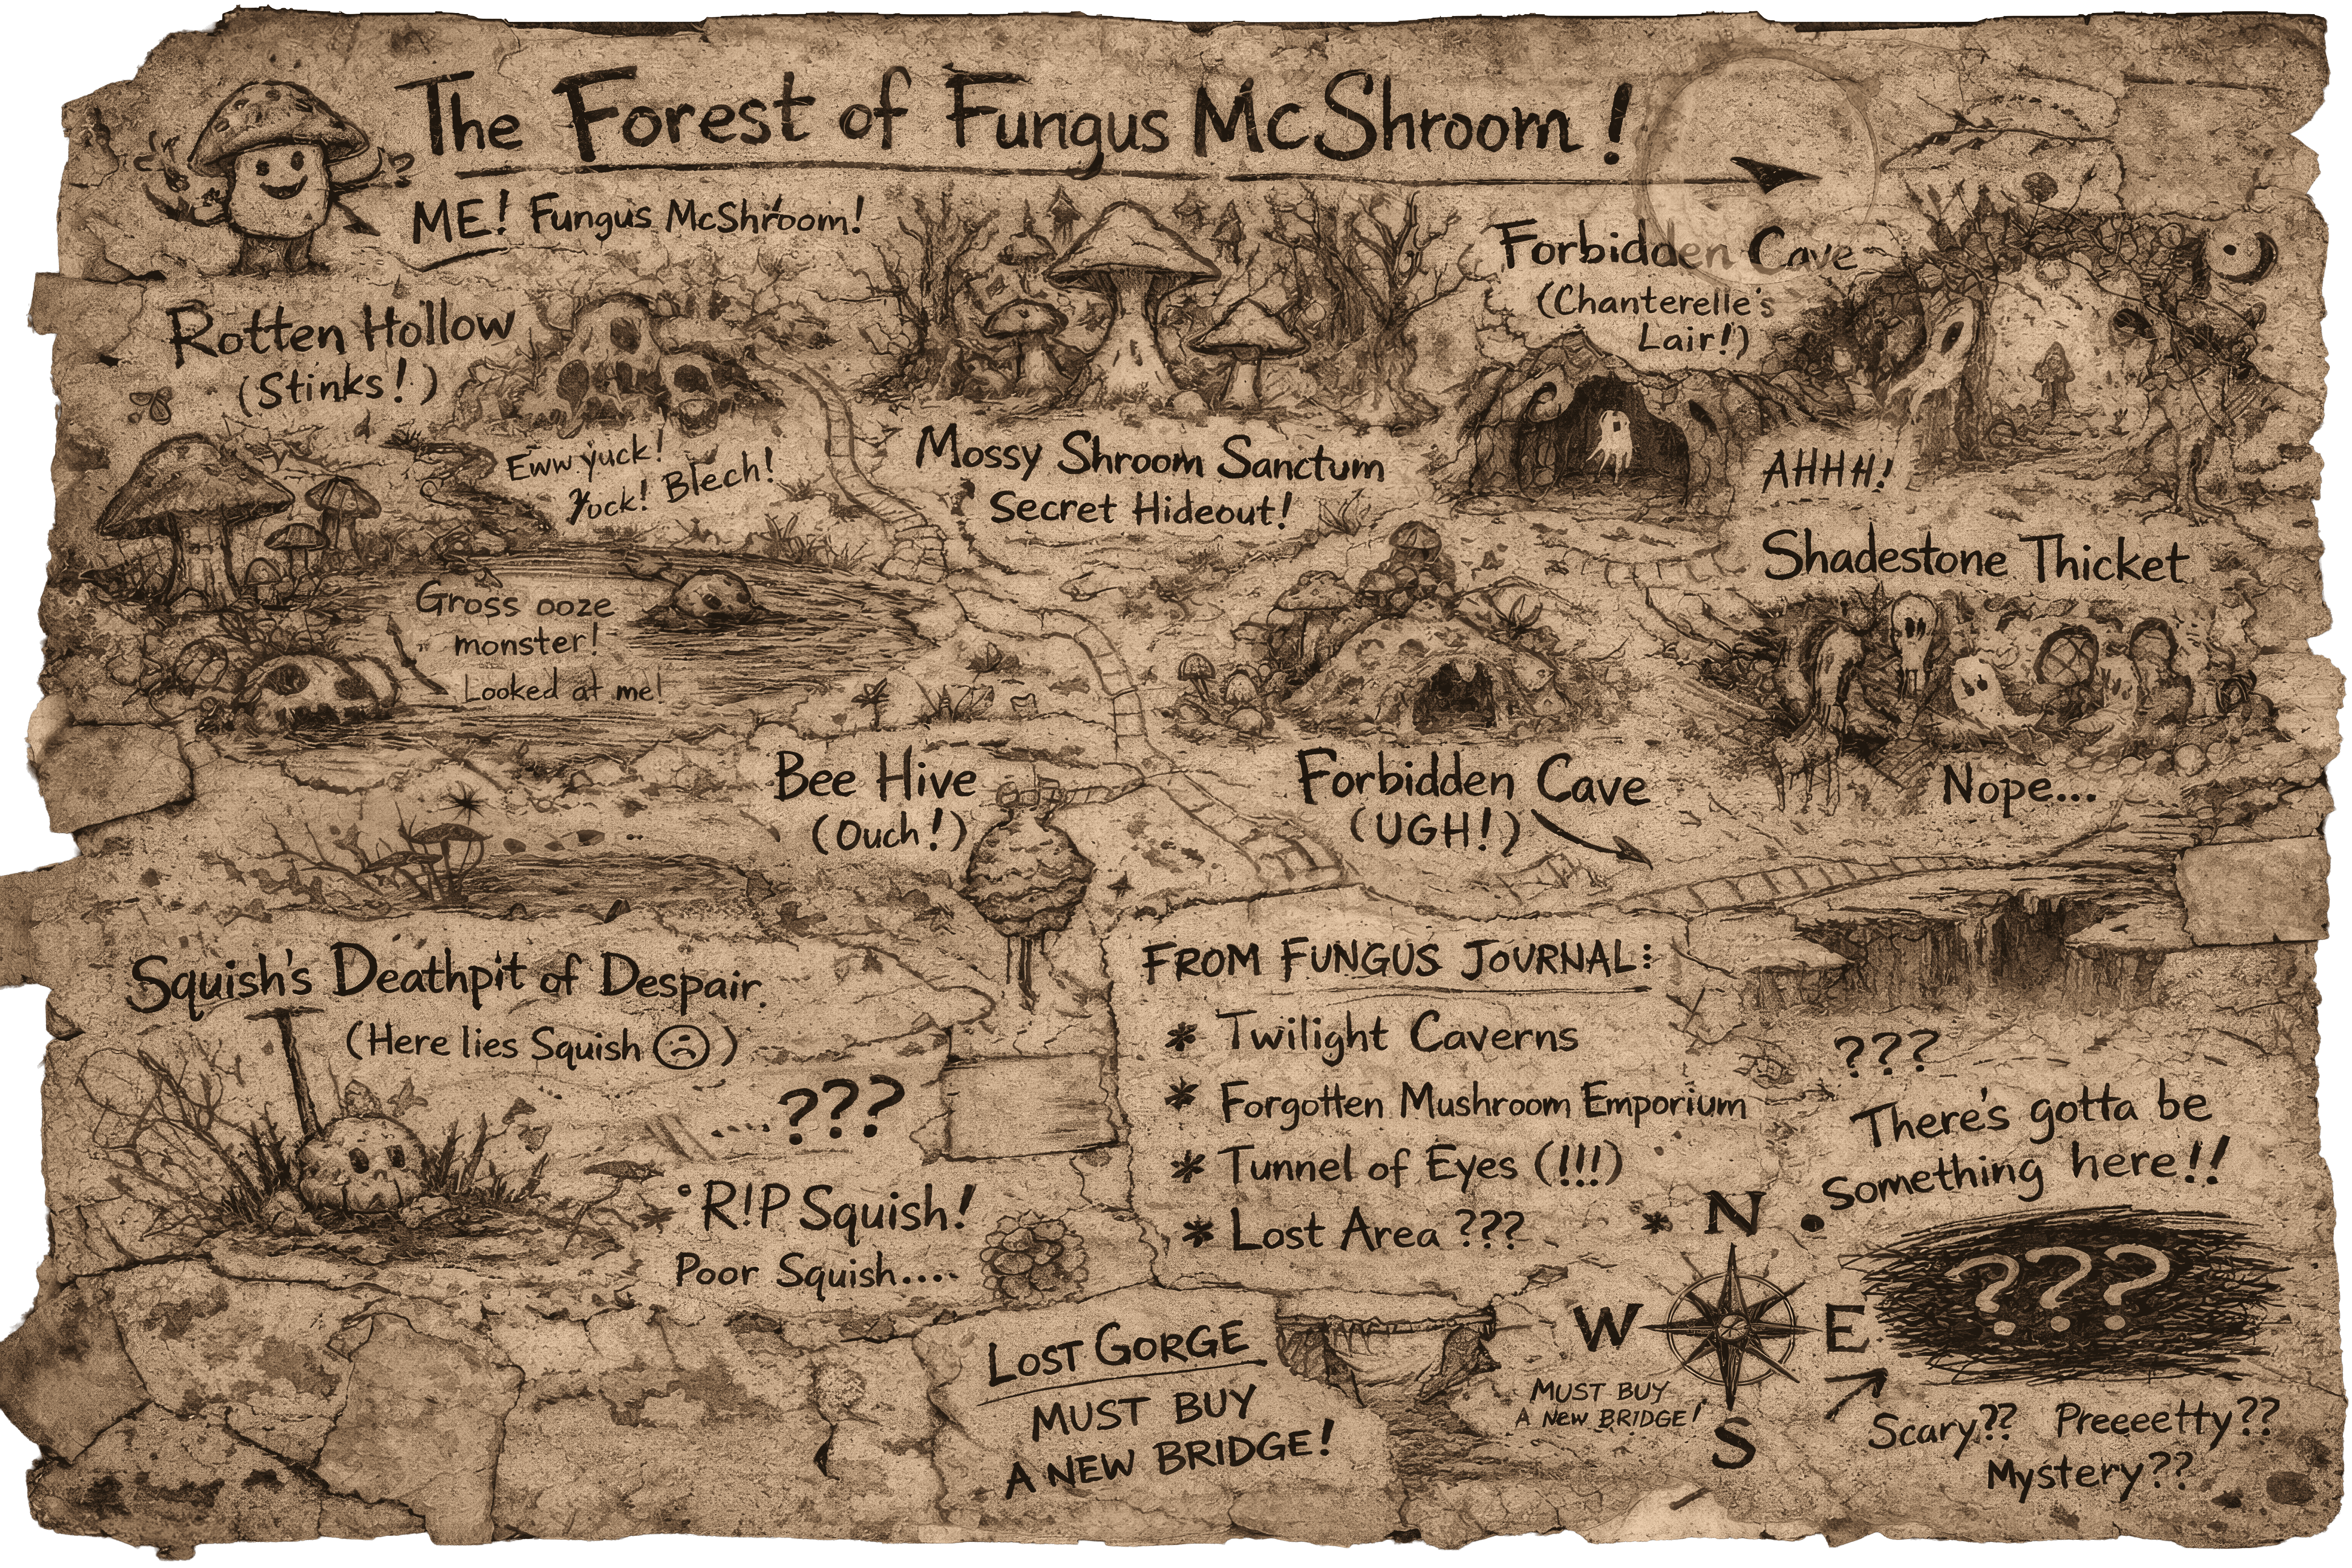 The Forest of Fungus McShroom!
ME! Fungus McShroom!
Rotten Hollow
(Stinks!)
Eww yuck!
Yuck! Blech!
Mossy Shroom Sanctum
Secret Hideout!
Forbidden Cave
(Chanterelle's
Lair!)
AHHH!
Shadestone Thicket
Nope...
Gross ooze
monster!
Looked at me!
Bee Hive
(Ouch!)
Forbidden Cave
(UGH!)
Squish's Deathpit of Despair.
(Here lies Squish ☹)
???
R!P Squish!
Poor Squish....
FROM FUNGUS JOURNAL:
* Twilight Caverns
* Forgotten Mushroom Emporium
* Tunnel of Eyes (!!!)
* Lost Area ???
???
There's gotta be
something here!!
???
Scary?? Preeeetty??
Mystery??
N
W E
S
MUST BUY
A NEW BRIDGE!
LOST GORGE
MUST BUY
A NEW BRIDGE!